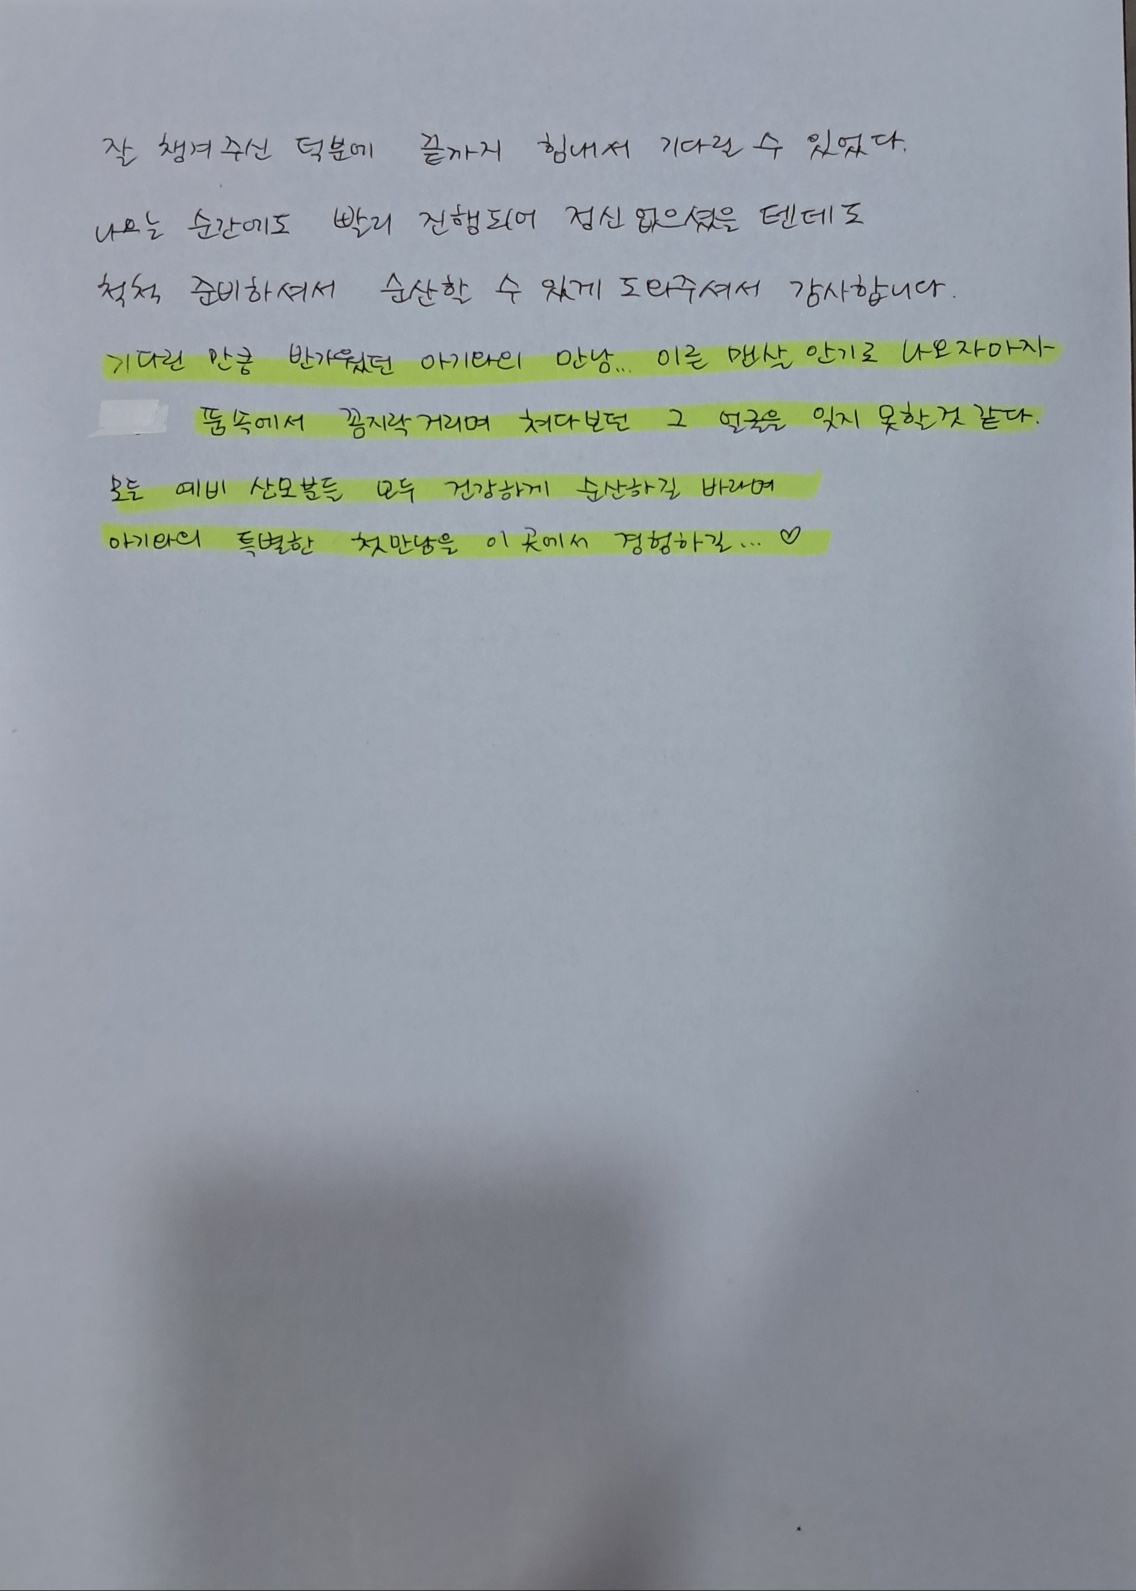 잘 챙겨주신 덕분에 끝까지 힘내서 기다릴 수 있었다.
나오는 순간에도 빨리 진행되어 정신 없으셨을 텐데도
척척 준비하셔서 순산할 수 있게 도와주셔서 감사합니다.
기다린 만큼 반가웠던 아기와의 만남... 이른 맨살 안기로 나오자마자
품속에서 꼼지락거리며 쳐다보던 그 얼굴을 잊지 못할 것 같다.
모든 예비 산모분들 모두 건강하게 순산하길 바라며
아기와의 특별한 첫만남을 이 곳에서 경험하길... ♡